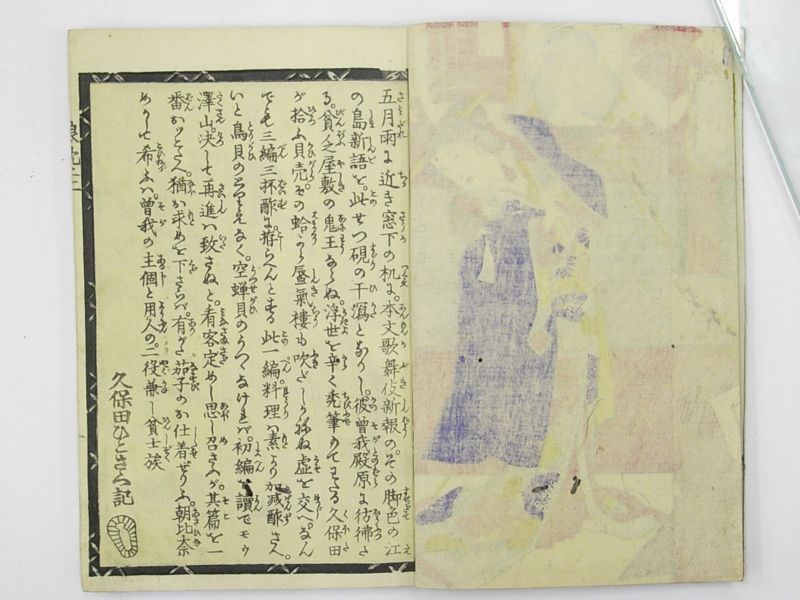 五月雨に近き窓下の机に。本文歌舞伎新報の。その脚色の江
の島新語を。此せつ硯の干潟となりし。彼曽我殿原に彷彿た
る。貧乏屋敷の鬼王ならね。浮世を辛く禿筆の久保田
が拾ふ貝売。その蛤から蜃気楼も吹だしかね虚を交。なん
でも三編三杯酢に拵らんとする此一編料理ハ素より加減酢さへ
いと鳥貝のなく。空蝉貝のうつなけれバ。初編讀でモウ
澤山。决して再進ハ致さねと。看客定めし思し召さんが。其篇を一
番かッこんで。猶か求めを下さらバ。有がた茄子のか仕着せり。朝比奈
めかして希ふハ。曽我の主個と用人の。二役兼し貧士族
久保田ひこさく記